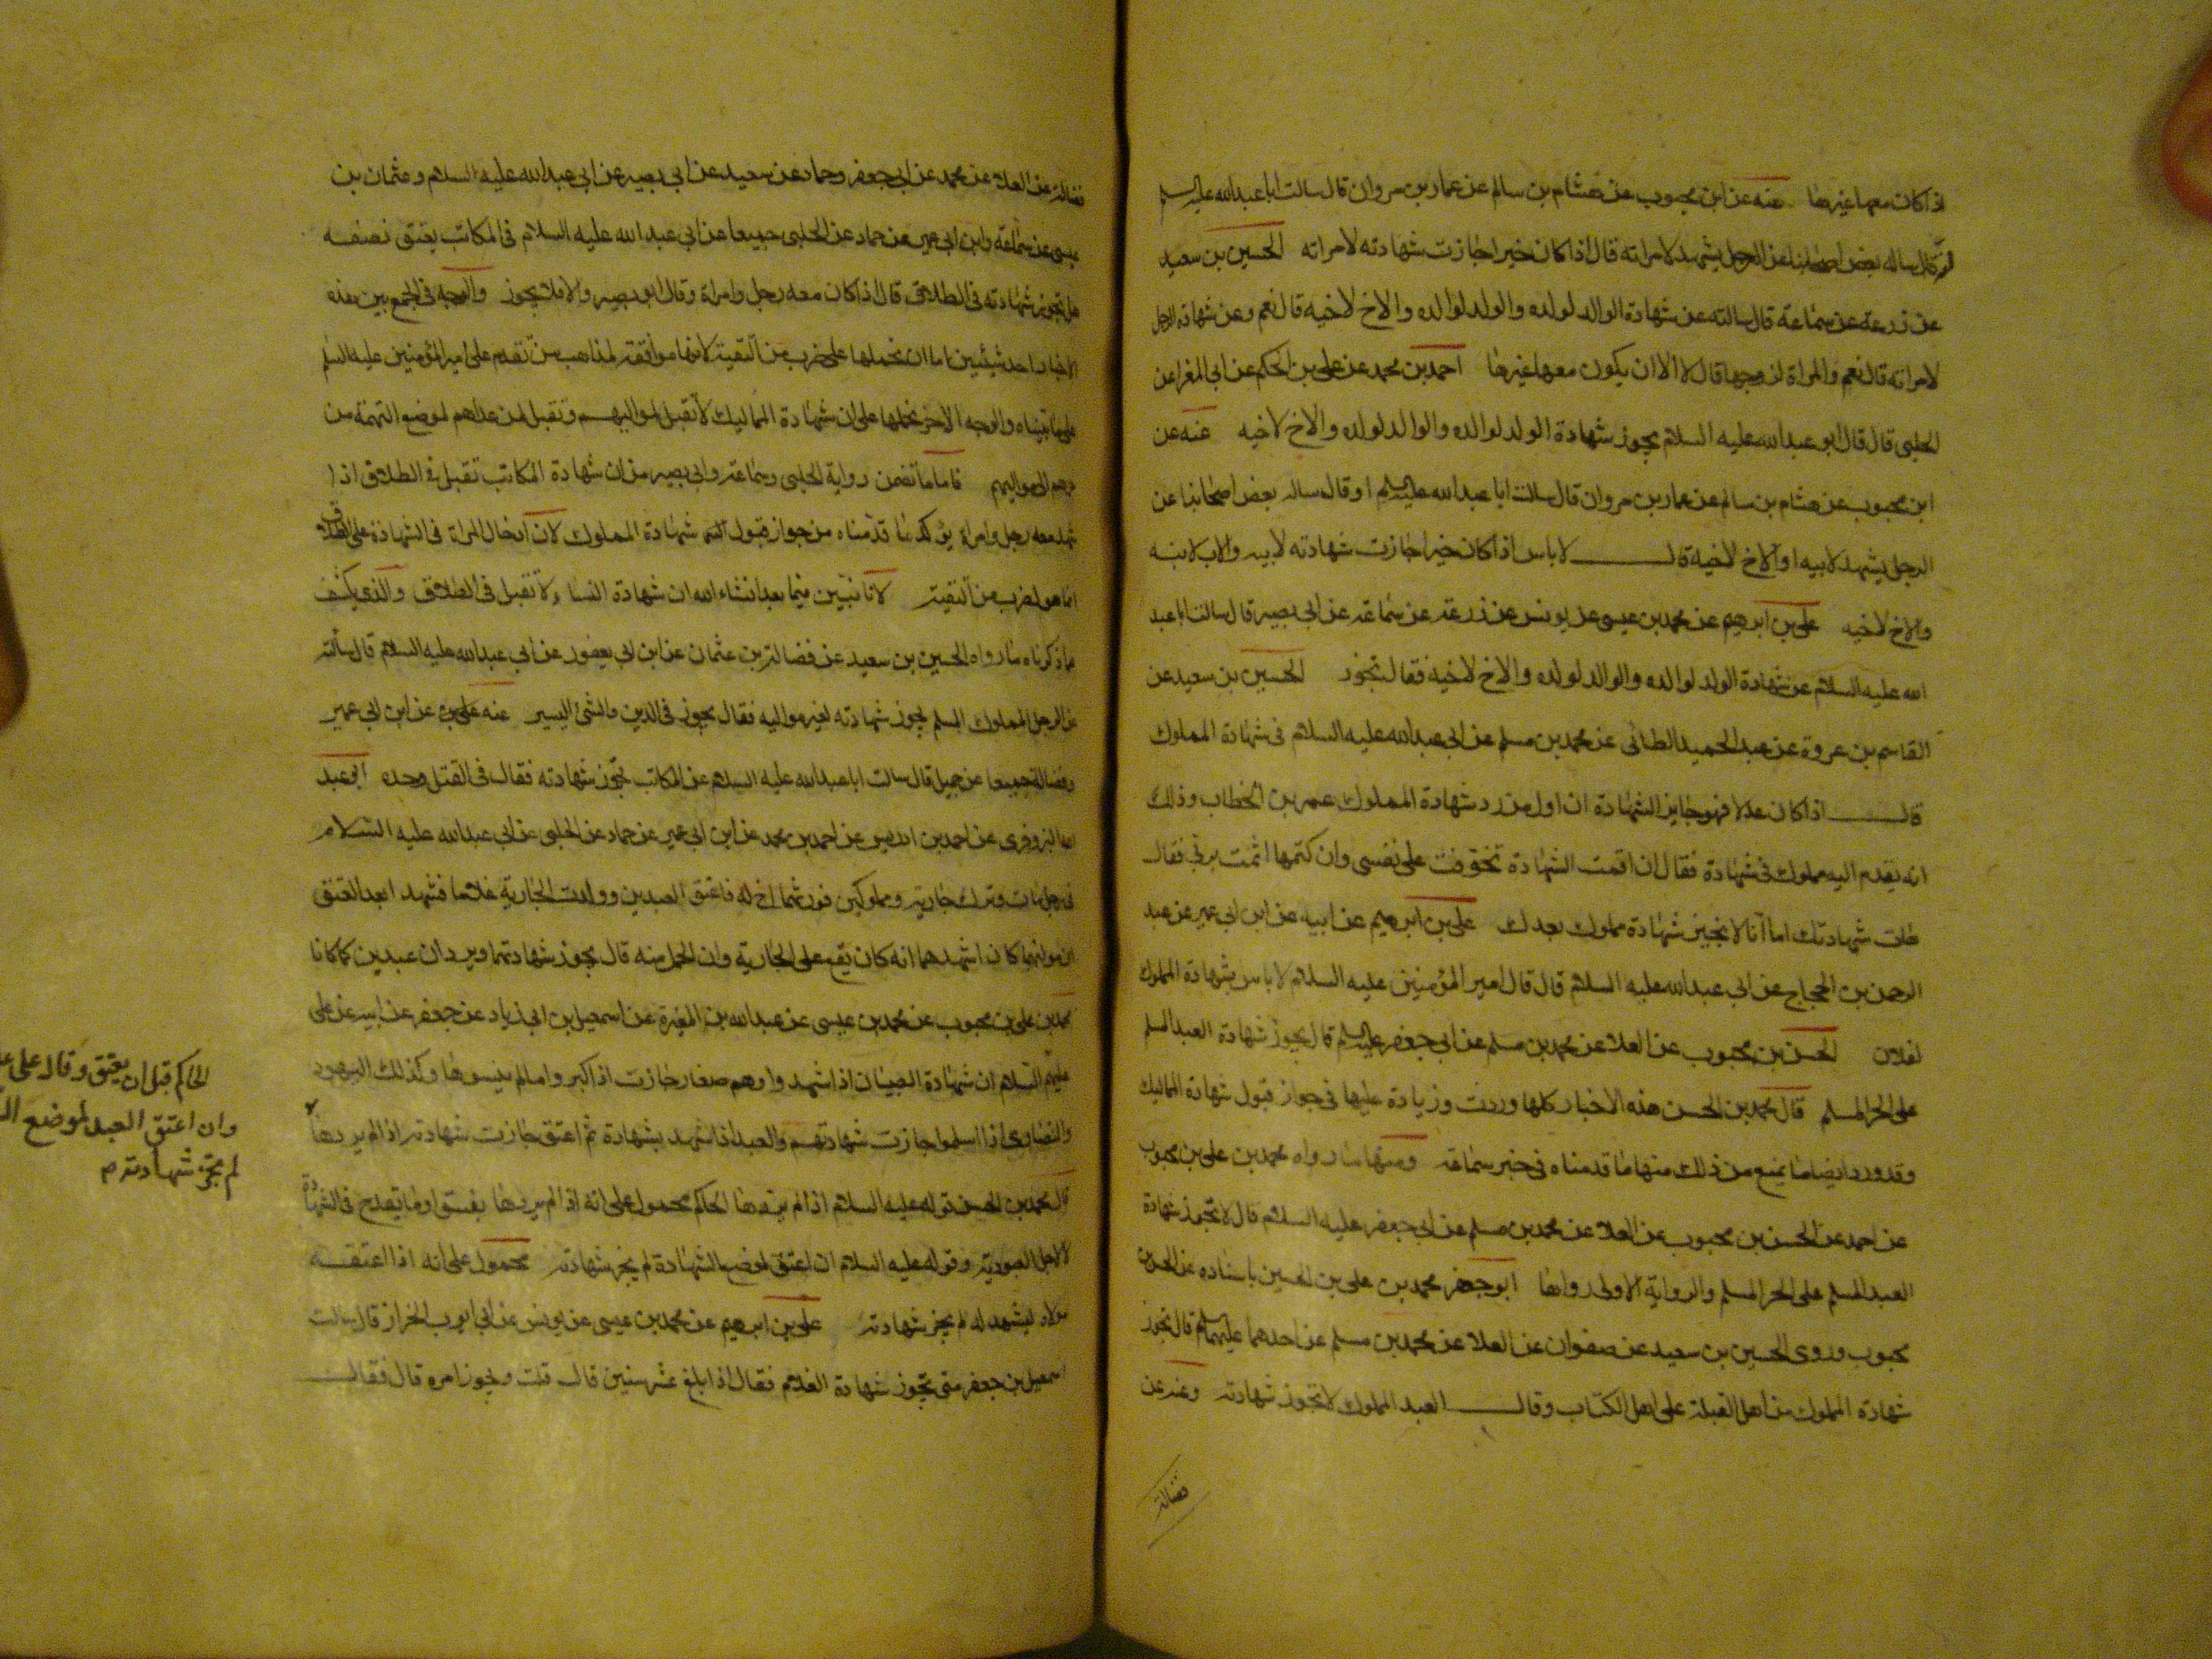 اذا كان معها غيرها عنه عن ابن محبوب عن هشام بن سالم عن عمار بن مروان قال سالت ابا عبدالله عليه السلم
او قال ساله بعض اصحابنا عن الرجل يشهد لامراته قال اذا كان خيرا جازت شهادته لامراته الحسين بن سعيد
عن زرعة عن سماعة قال سالته عن شهادة الوالد لولده والولد لوالده والاخ لاخيه قال نعم وعن شهادة الرجل
لامراته قال نعم والمراة لزوجها قال لا الا ان يكون معها غيرها احمد بن محمد عن علي بن الحكم عن ابي المغرا عن
الحلبي قال قال ابو عبدالله عليه السلام يجوز شهادة الولد لوالده والوالد لولده والاخ لاخيه عنه عن
ابن محبوب عن هشام بن سالم عن عمار بن مروان قال سالت ابا عبدالله عليه السلم او قال ساله بعض اصحابنا عن
الرجل يشهد لابيه او الاخ لاخيه قال لا باس اذا كان خيرا جازت شهادته لابيه والاب لابنه
والاخ لاخيه علي بن ابرهيم عن محمد بن عيسى عن يونس عن زرعة عن سماعة عن ابي بصير قال سالت ابا عبد
الله عليه السلام عن شهادة الولد لوالده والوالد لولده والاخ لاخيه فقال تجوز الحسين بن سعيد عن
القاسم بن عروة عن عبد الحميد الطائي عن محمد بن مسلم عن ابي عبدالله عليه السلام في شهادة المملوك
قال اذا كان عدلا فهو جايز الشهادة ان اول من رد شهادة المملوك عمر بن الخطاب وذلك
انه تقدم اليه مملوك في شهادة فقال ان اقمت الشهادة تخوفت على نفسي وان كتمتها اثمت بربي فقال
هات شهادتك اما انا لا نجيز شهادة مملوك بعدك علي بن ابرهيم عن ابيه عن ابن ابي عمير عن عبد
الرحمن بن الحجاج عن ابي عبدالله عليه السلام قال قال امير المؤمنين عليه السلام لا باس بشهادة المملوك
لفلان الحسن بن محبوب عن العلا عن محمد بن مسلم عن ابي جعفر عليه السلم قال يجوز شهادة العبد المسلم
على الحر المسلم قال محمد بن الحسن هذه الاخبار كلها وردت وزيادة عليها في جواز قبول شهادة المماليك
وقد ورد ايضا ما يمنع من ذلك منها ما قدمناه في خبر سماعة ومنها ما رواه محمد بن علي بن محبوب
عن احمد عن الحسن بن محبوب عن العلا عن محمد بن مسلم عن ابي جعفر عليه السلام قال لا تجوز شهادة
العبد المسلم على الحر المسلم والرواية الاولى رواها ابو جعفر محمد بن علي بن الحسين باسناده عن الحسن بن
محبوب وروى الحسين بن سعيد عن صفوان عن العلا عن محمد بن مسلم عن احدهما عليهما السلم قال تجوز
شهادة المملوك من اهل القبلة على اهل الكتاب وقال العبد المملوك لا تجوز شهادته وعنه عن
فضالة
فضالة عن العلا عن محمد عن ابي جعفر وحماد عن سعيد عن ابي بصير عن ابي عبدالله عليه السلام وعثمان بن
عيسى عن سماعة وابن ابي عمير عن حماد عن الحلبي جميعا عن ابي عبدالله عليه السلام في المكاتب يعتق نصفه
هل تجوز شهادته في الطلاق قال اذا كان معه رجل وامراة وقال ابو بصير والا فلا تجوز والوجه في الجمع بين هذه
الاخبار احد شيئين اما ان نحملها على ضرب من التقية لانها موافقة لمذاهب من تقدم على امير المؤمنين عليه السلم
على ما بيناه والوجه الاخر نحملها على ان شهادة المماليك لا تقبل لمواليهم وتقبل لمن عداهم لموضع التهمة من
جرهم الى مواليهم فاما ما تضمن رواية الحلبي وسماعة وابي بصير من ان شهادة المكاتب تقبل في الطلاق اذا
شهد معه رجل وامراة يؤكد ما قدمناه من جواز قبول شهادة المملوك لان ادخال المراة في الشهادة على الطلاق
انما هو لضرب من التقية لانا نبين فيما بعد انشاء الله ان شهادة النساء لا تقبل في الطلاق والذي يكشف
ما ذكرناه ما رواه الحسين بن سعيد عن فضالة بن عثمان عن ابن ابي يعفور عن ابي عبدالله عليه السلام قال سالته
عن الرجل المملوك المسلم تجوز شهادته لغير مواليه فقال يجوز في الدين والشئ اليسير عنه عن ابن ابي عمير
وفضالة جميعا عن جميل قال سالت ابا عبدالله عليه السلام عن المكاتب تجوز شهادته فقال في القتل وحده ابو عبد
الله البزوفري عن احمد بن ادريس عن احمد بن محمد عن ابن ابي عمير عن حماد عن الحلبي عن ابي عبدالله عليه السلام
في رجل مات وترك جارية ومملوكين فورثهما اخ له فاعتق العبدين وولدت الجارية غلاما فشهد ابعد العتق
ان مولاهما كان اشهدهما انه كان يقع على الجارية وان الحمل منه قال يجوز شهادتهما ويردان عبدين كما كانا
محمد بن علي بن محبوب عن محمد بن عيسى عن عبدالله بن المغيرة عن اسمعيل بن ابي زياد عن جعفر عن ابيه عن علي
عليهم السلام ان شهادة الصبيان اذا شهدوا وهم صغار جازت اذا كبروا ما لم ينسوها وكذلك اليهود
والنصارى اذا اسلموا جازت شهادتهم والعبد اذا شهد بشهادة ثم اعتق جازت شهادته اذا لم يردها
الحاكم قبل ان يعتق وقال علي
وان اعتق العبد لموضع
لم تجز شهادته
قال محمد بن الحسن قوله عليه السلام اذا لم يردها الحاكم محمول على انه اذا لم يردها بفسق او ما يقدح في الشهادة
لا لاجل العبودية وقوله عليه السلام ان اعتق لموضع الشهادة لم يجز شهادته محمول على انه اذا اعتقه
مولاه ليشهد له لم يجز شهادته علي بن ابرهيم عن محمد بن عيسى عن يونس عن ابي ايوب الخزاز قال سالت
اسمعيل بن جعفر متى تجوز شهادة الغلام فقال اذا بلغ عشر سنين قال قلت ويجوز امره قال فقال